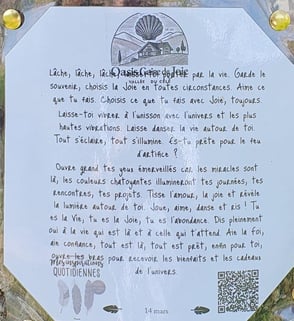 Oasis Grise de Joie
VALLÉE DU CÉLÉ
Lâche, lâche, lâche, laisse-toi porter par la vie. Garde le
souvenir, choisis la Joie en toutes circonstances. Aime ce
que tu fais. Choisis ce que tu fais avec Joie, toujours.
Laisse-toi vibrer à l'unisson avec l'univers et les plus
hautes vibrations. Laisse danser la vie autour de toi.
Tout s'éclaire, tout s'illumine. Es-tu prête pour le feu
d'artifice ?
Ouvre grand tes yeux émerveillés car les miracles sont
là, les couleurs chatoyantes illumineront tes journées, tes
rencontres, tes projets. Tisse l'amour, la joie et révèle
la lumière autour de toi. Joue, aime, danse et ris ! Tu
es la Vie, tu es la Joie, tu es l'abondance. Dis pleinement
oui à la vie qui est là et à celle qui t'attend. Aie la foi,
aie confiance, tout est là, tout est prêt, enfin pour toi,
ouvre les bras pour recevoir les bienfaits et les cadeaux
de l'univers.
Mes inspirations
QUOTIDIENNES
14 mars